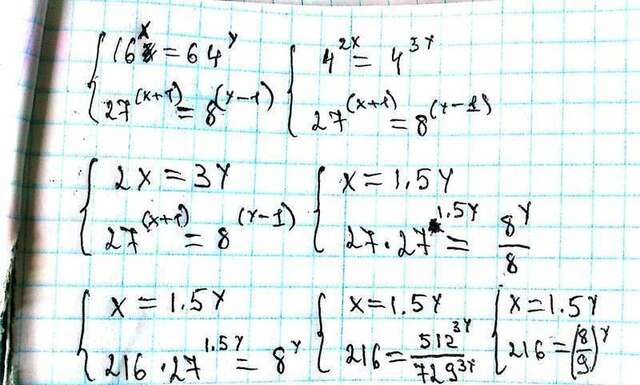 16^x = 64^y
27^(x+1) = 8^(y-1)
4^2x = 4^3y
27^(x+1) = 8^(y-1)
2x = 3y
27^(x+1) = 8^(y-1)
x = 1.5y
27·27^1.5y = 8^y/8
x = 1.5y
216·27^1.5y = 8^y
x = 1.5y
216 = 512^3y/729^3y
x = 1.5y
216 = (8/9)^y